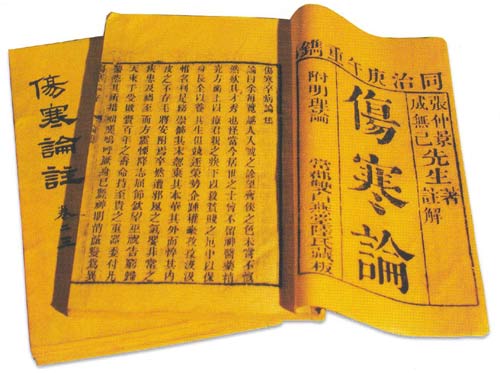 同治庚午重鐫
張仲景先生著
成無己註解
傷寒論
附明理論
常郡雙白燕堂陸氏藏板
傷寒卒病論集
論曰余每覽越人入虢之診望齊侯之色未嘗不慨
然歎其才秀也怪當今居世之士曾不留神醫藥精
究方術上以療君親之疾下以救貧賤之厄中以保
身長全以養其生但競逐榮勢企踵權豪孜孜汲汲
惟名利是務崇飾其末忽棄其本華其外而悴其內
皮之不存毛將安附焉卒然遭邪風之氣嬰非常之
疾患及禍至而方震慄降志屈節欽望巫祝告窮歸
天束手受敗賚百年之壽命持至貴之重器委付凡
醫恣其所措咄嗟嗚呼厥身已斃神明消滅變為異
傷寒論註
卷二三